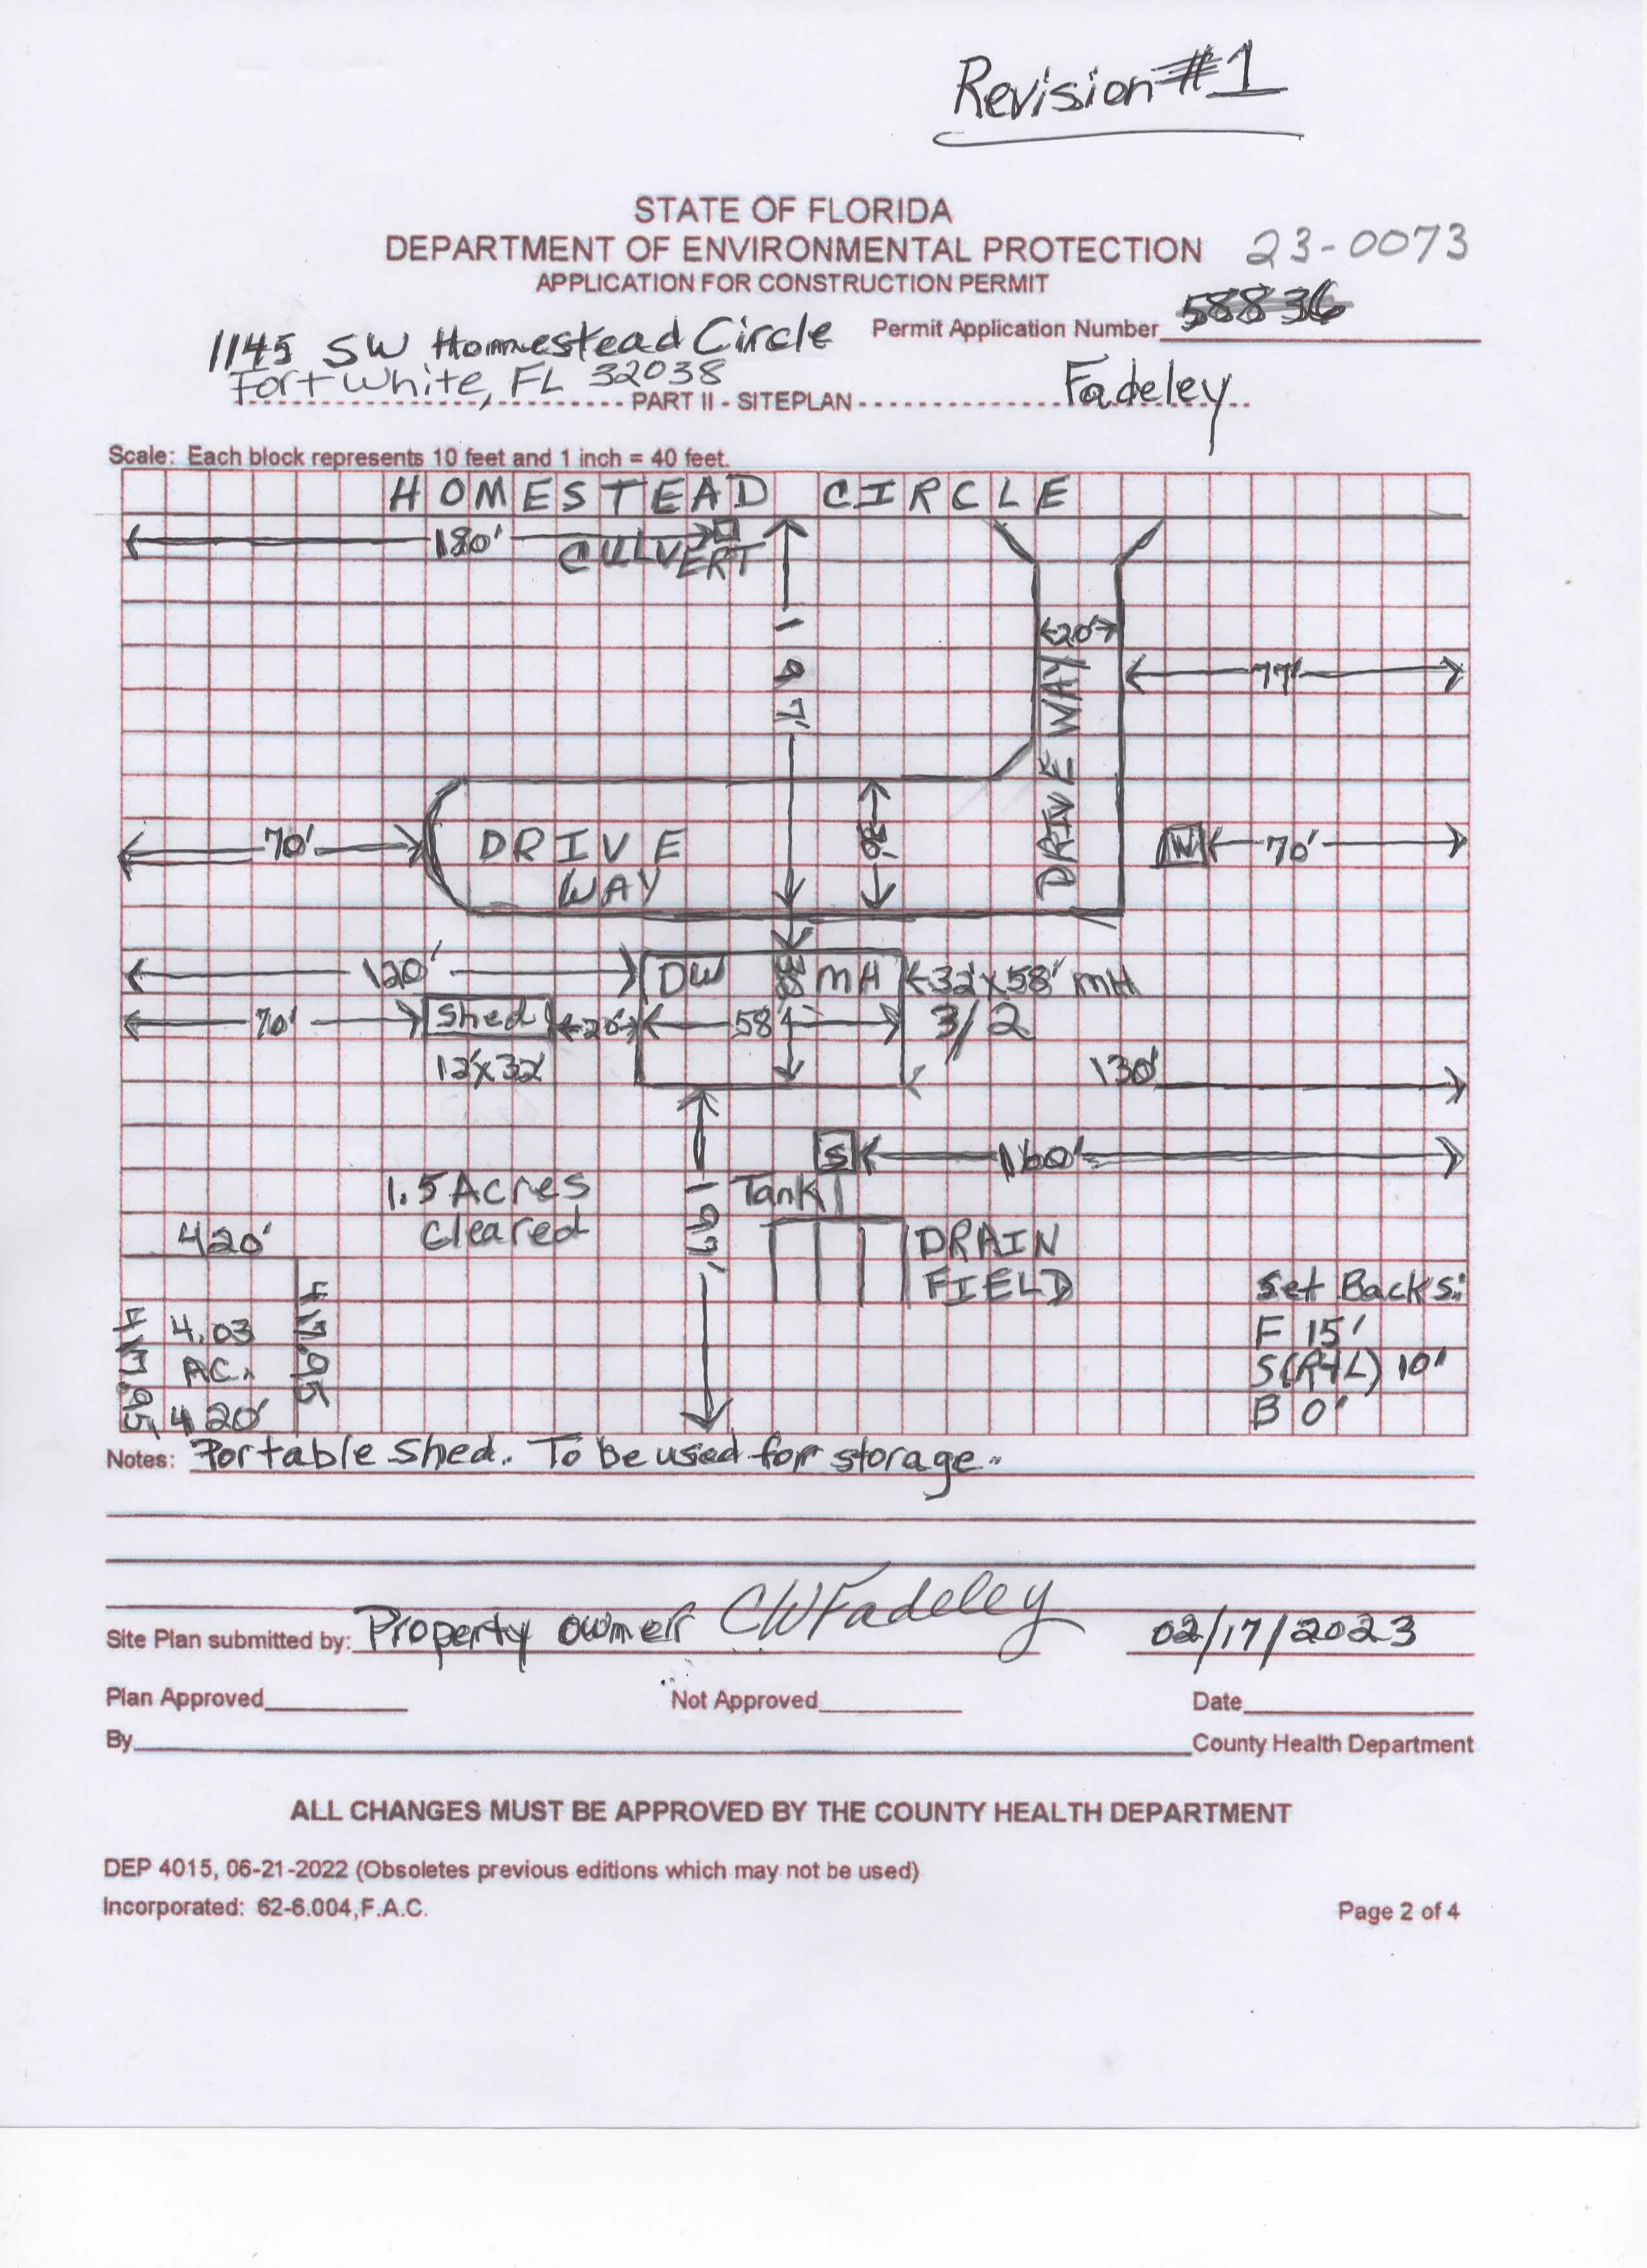 Revision #1
STATE OF FLORIDA
DEPARTMENT OF ENVIRONMENTAL PROTECTION 23-0073
APPLICATION FOR CONSTRUCTION PERMIT
Permit Application Number 58836
1145 SW Homestead Circle
Fort White, FL 32038
PART II - SITEPLAN
Fadeley
Scale: Each block represents 10 feet and 1 inch = 40 feet.
HOMESTEAD CIRCLE
180'
CULVERT
20'
197'
77'
DRIVE WAY
70'
DRIVE WAY
W
70'
120'
DW MH
32'x58' MH
70'
Shed
20'
58'
3/2
12'x32'
130'
S
160'
1.5 Acres
Cleared
197'
Tank
DRAIN
FIELD
420'
417.95
4.03
AC.
417.95
420'
Set Backs:
F 15'
S(R+L) 10'
B 0'
Notes: Portable Shed. To be used for storage.
Site Plan submitted by: Property owner CWFadeley 02/17/2023
Plan Approved Not Approved Date
By County Health Department
ALL CHANGES MUST BE APPROVED BY THE COUNTY HEALTH DEPARTMENT
DEP 4015, 06-21-2022 (Obsoletes previous editions which may not be used)
Incorporated: 62-6.004,F.A.C.
Page 2 of 4